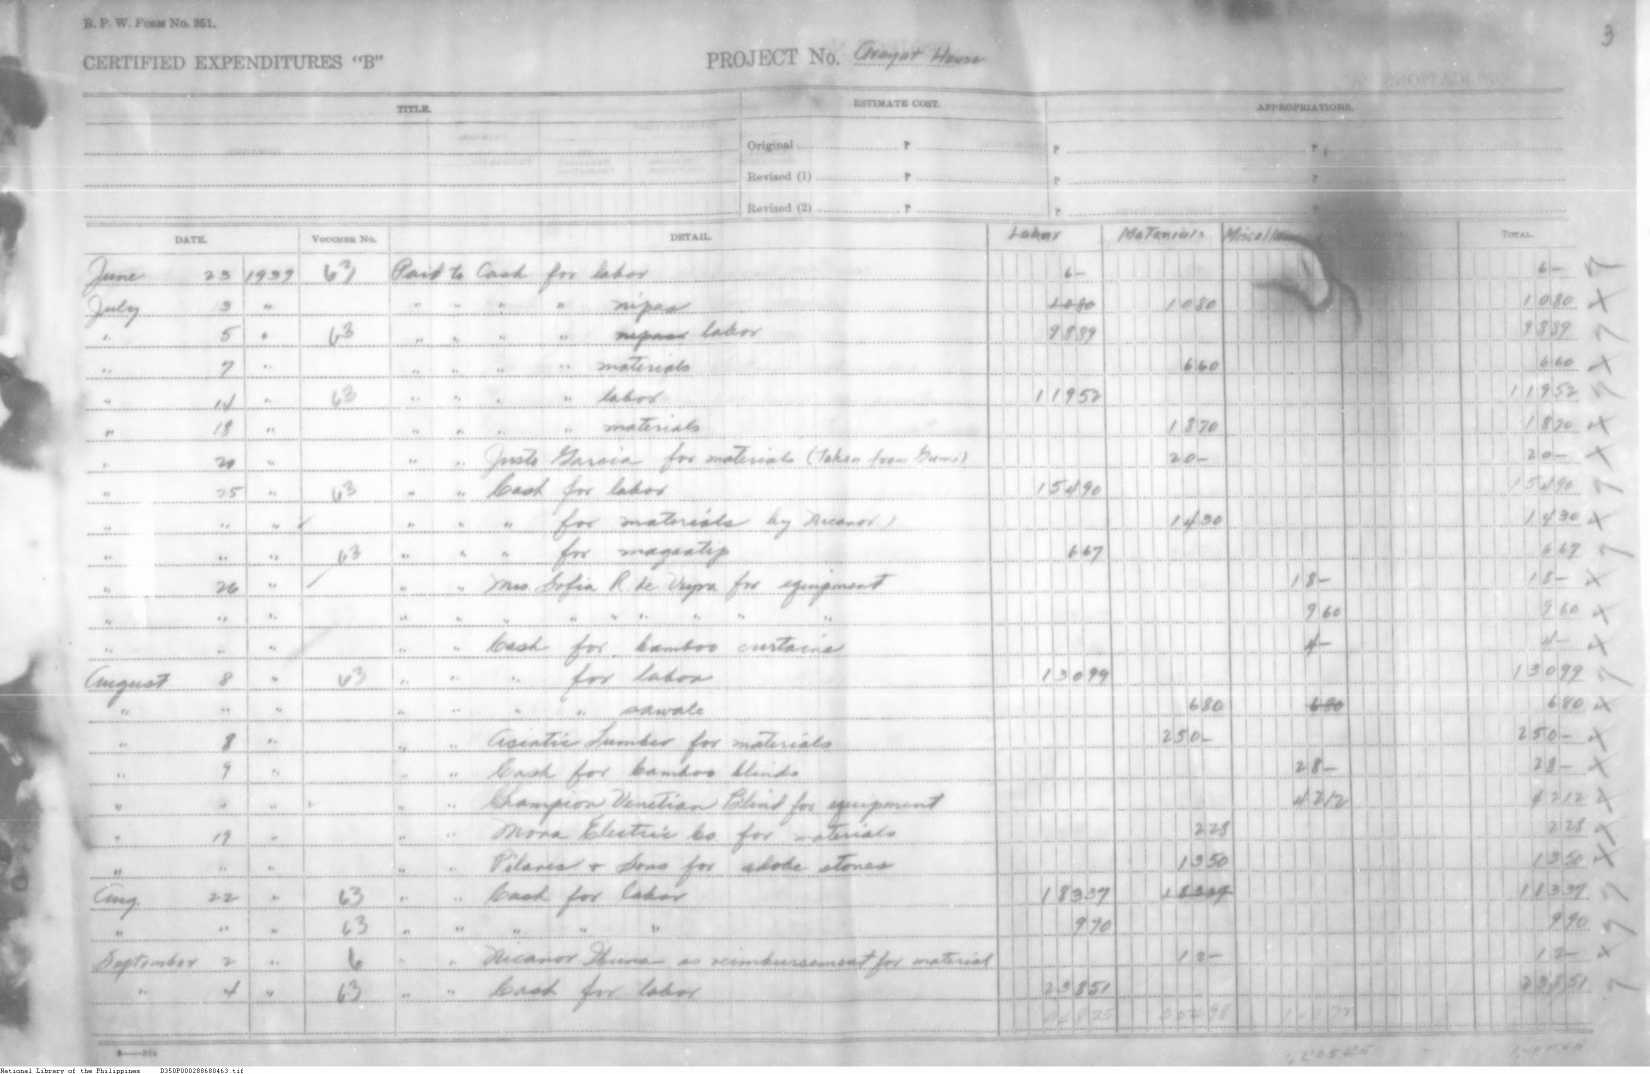 3
B. P. W. Form No. 351.
CERTIFIED EXPENDITURES "B" PROJECT No. Arayat House
TITLE. ESTIMATE COST. APPROPRIATIONS.
Original ₱ ₱ ₱
Revised (1) ₱ ₱ ₱
Revised (2) ₱ ₱ ₱
DATE. VOUCHER No. DETAIL. Labor Materials TOTAL.
June 23 1939 63 Paid to Cash for labor 6— 6—
July 3 " " " " " nipa 1080 1080 1080 X
" 5 " 63 " " " " nipa labor 9839 9839
" 7 " " " " " materials 660 660 X
" 14 " 63 " " " " labor 11952 11952
" 18 " " " " " materials 1870 1870 X
" 20 " " " Justo Garcia for materials (Taken from 20— 20— X
" 25 " 63 " " Cash for labor 15490 15490
" " " " " " for materials by Nicanor) 1430 1430 X
" " " 63 " " " for 667 667
" 26 " " " Mrs. Sofia R. de Veyra for equipment 18— 18— X
" " " " " " " " " " " 960 960 X
" " " " " Cash for bamboo curtains 4— 4— X
August 8 " 63 " " " for labor 13099 13099
" " " " " " " sawale 680 680 680 X
" 8 " " " Asiatic Lumber for materials 250— 250— X
" 9 " " " Cash for bamboo blinds 28— 28— X
" " " " " Champion Venetian Blind for equipment 4212 4212 X
" 19 " " " Mora Electric Co. for materials 228 228 X
" " " " " Pilares & Sons for adobe stones 1350 1350 X
Aug. 22 " 63 " " Cash for labor 18337 18337
" " " 63 " " " " " 970
September 2 " 6 " " Nicanor as reimbursement for material 12— 12— X
" 4 " 63 " " Cash for labor 23851 23851
National Library of the Philippines D350P000288680463.tif